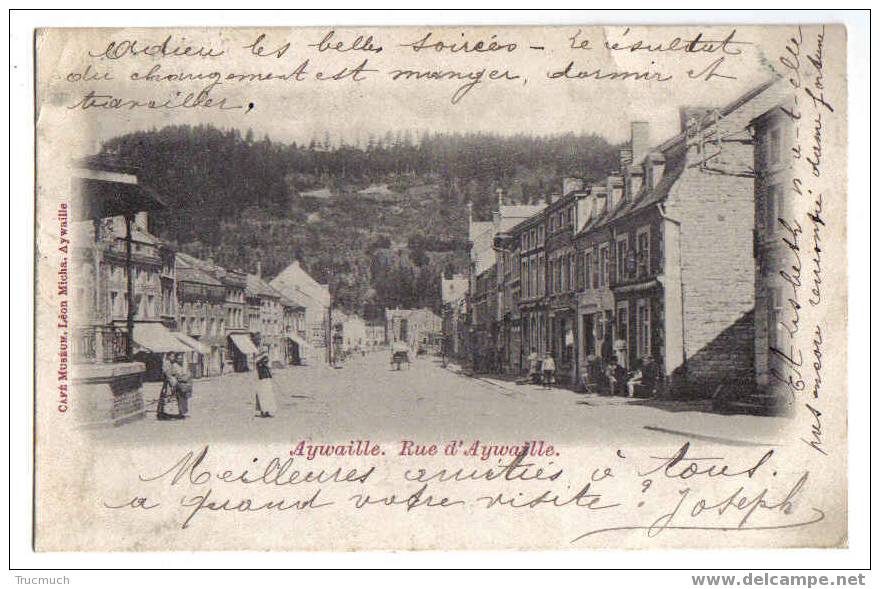 Adieu les belles soirées - Le résultat
du changement est manger, dormir et
travailler.
CAFÉ MUSEUM, Léon Micha, Aywaille
Et Lisbeth n'a-t-elle
pas encore rencontré dame fortune
Aywaille. Rue d'Aywaille.
Meilleures amitiés à tous.
a quand votre visite? Joseph
Trucmuch
www.delcampe.net